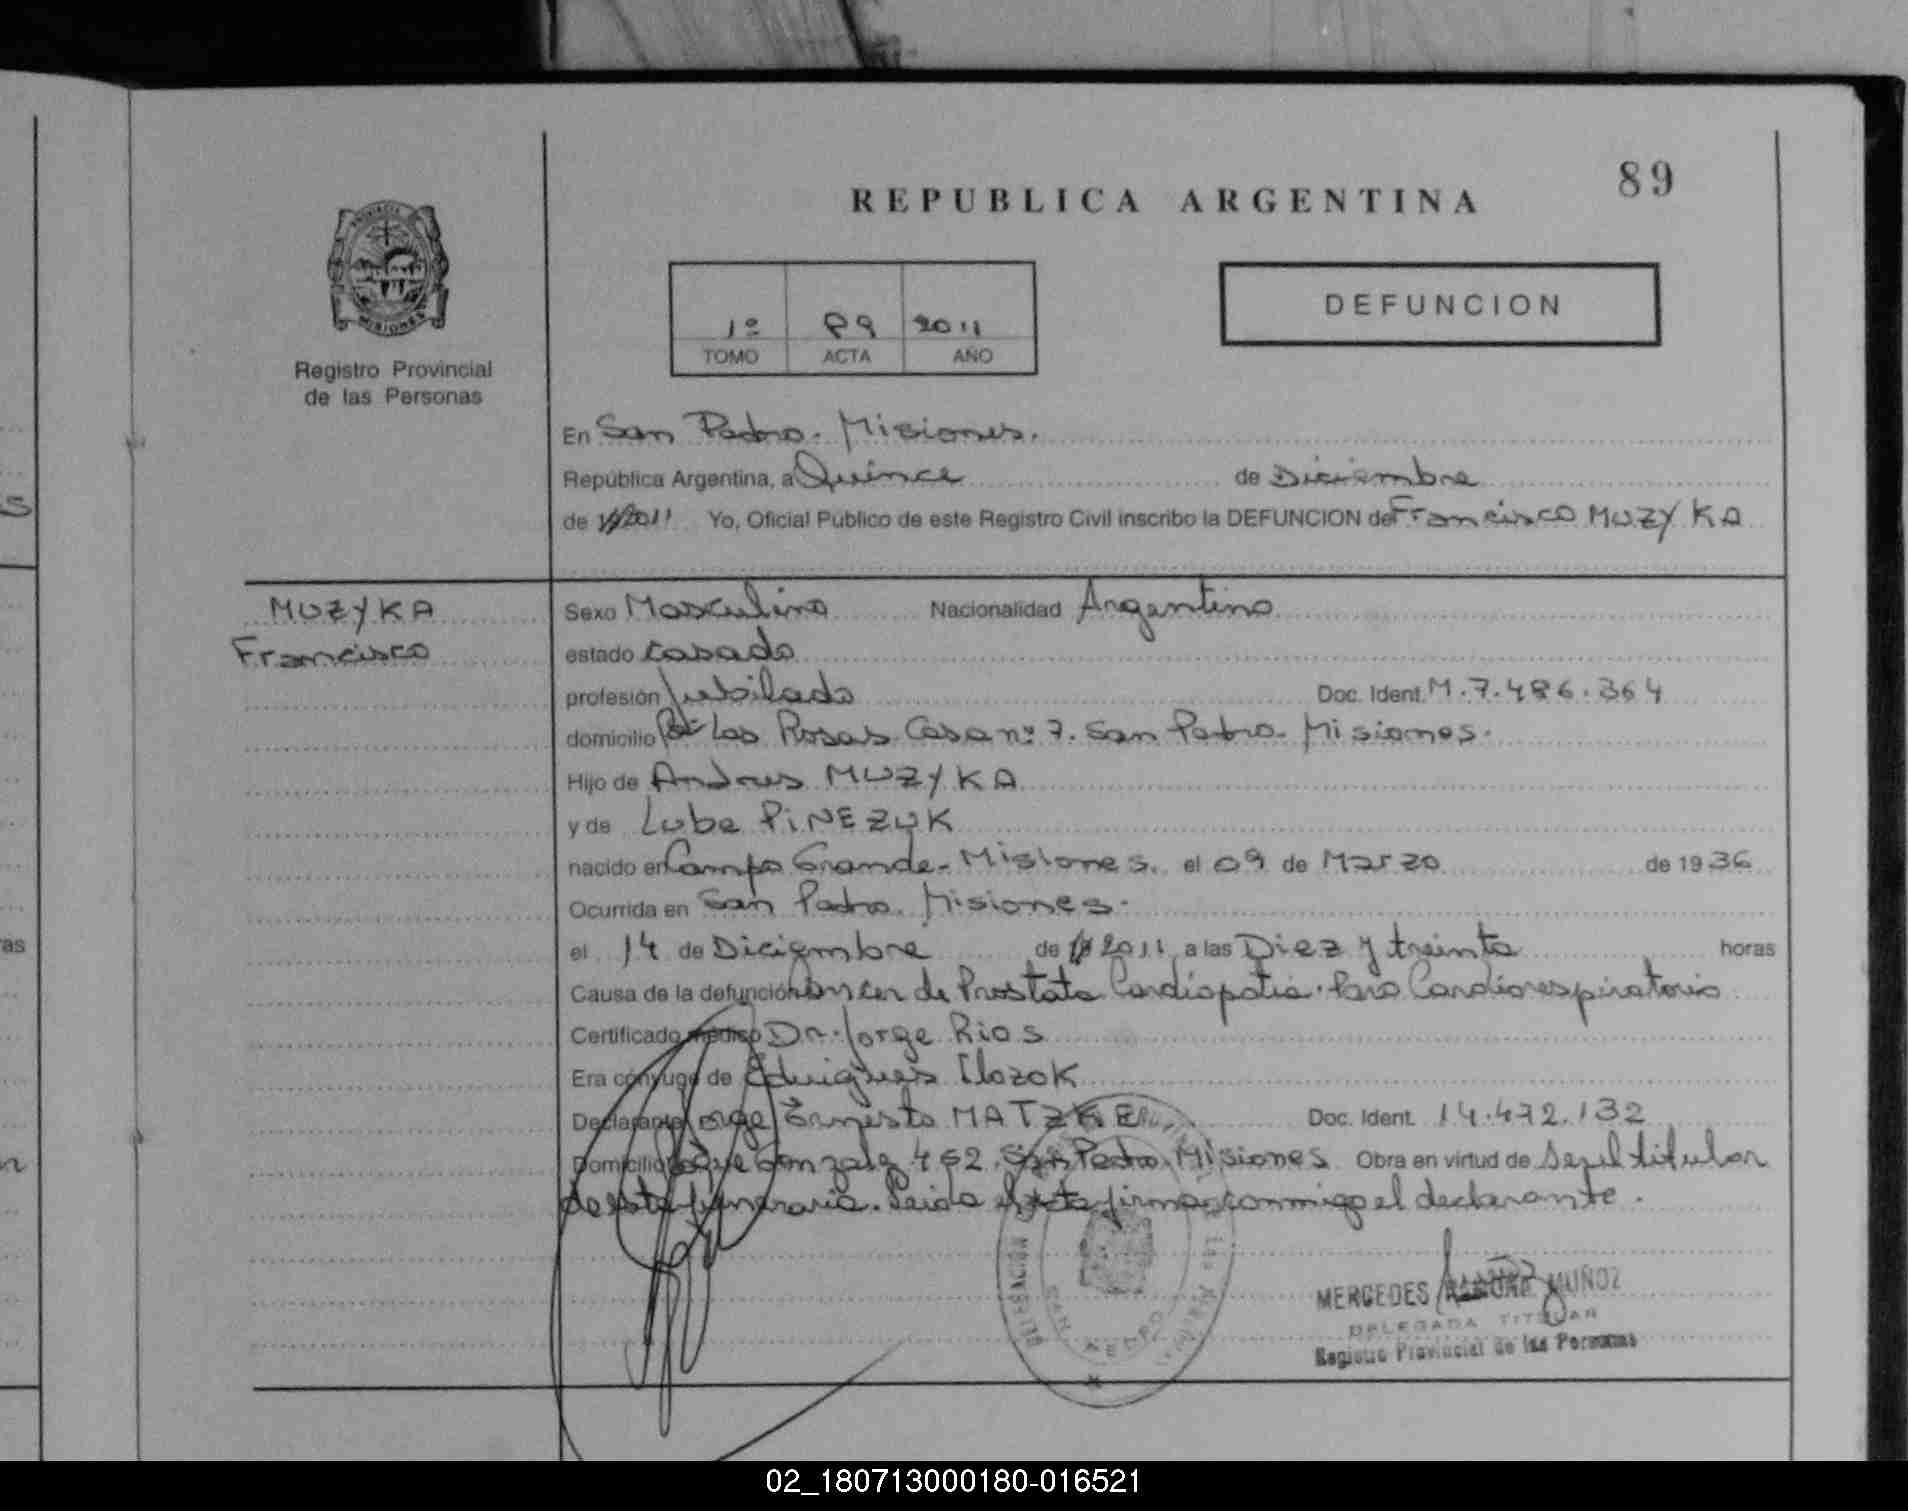 89
REPUBLICA ARGENTINA
PROVINCIA DE MISIONES
1º 89 2011
TOMO ACTA AÑO
DEFUNCION
Registro Provincial
de las Personas
En San Pedro. Misiones.
República Argentina, a Quince de Diciembre
de 2011 Yo, Oficial Público de este Registro Civil inscribo la DEFUNCION de Francisco MUZYKA
MUZYKA
Francisco
Sexo Masculino Nacionalidad Argentino
estado casado
profesión Jubilado Doc. Ident. M.7.486.364
domicilio Bº Las Rosas Casa nº 7. San Pedro. Misiones.
Hijo de Andres MUZYKA
y de Luba PINEZUK
nacido en Campo Grande - Misiones. el 09 de Marzo de 1936
Ocurrida en San Pedro. Misiones.
el 14 de Diciembre de 2011 a las Diez y treinta horas
Causa de la defunción Cancer de Prostata Cardiopatia. Paro Cardiorespiratorio
Certificado médico Dr. Jorge Rios
Era cónyuge de Eduigues
Declarante Jorge Ernesto MATZKE Doc. Ident. 14.472.132
Domicilio Gonzalez 452. San Pedro Misiones Obra en virtud de ser el titular
de esta funeraria. Leida el acta firma conmigo el declarante.
DELEGACIÓN
SAN PEDRO
MERCEDES RAMONA MUÑOZ
DELEGADA TITULAR
Registro Provincial de las Personas
02_180713000180-016521